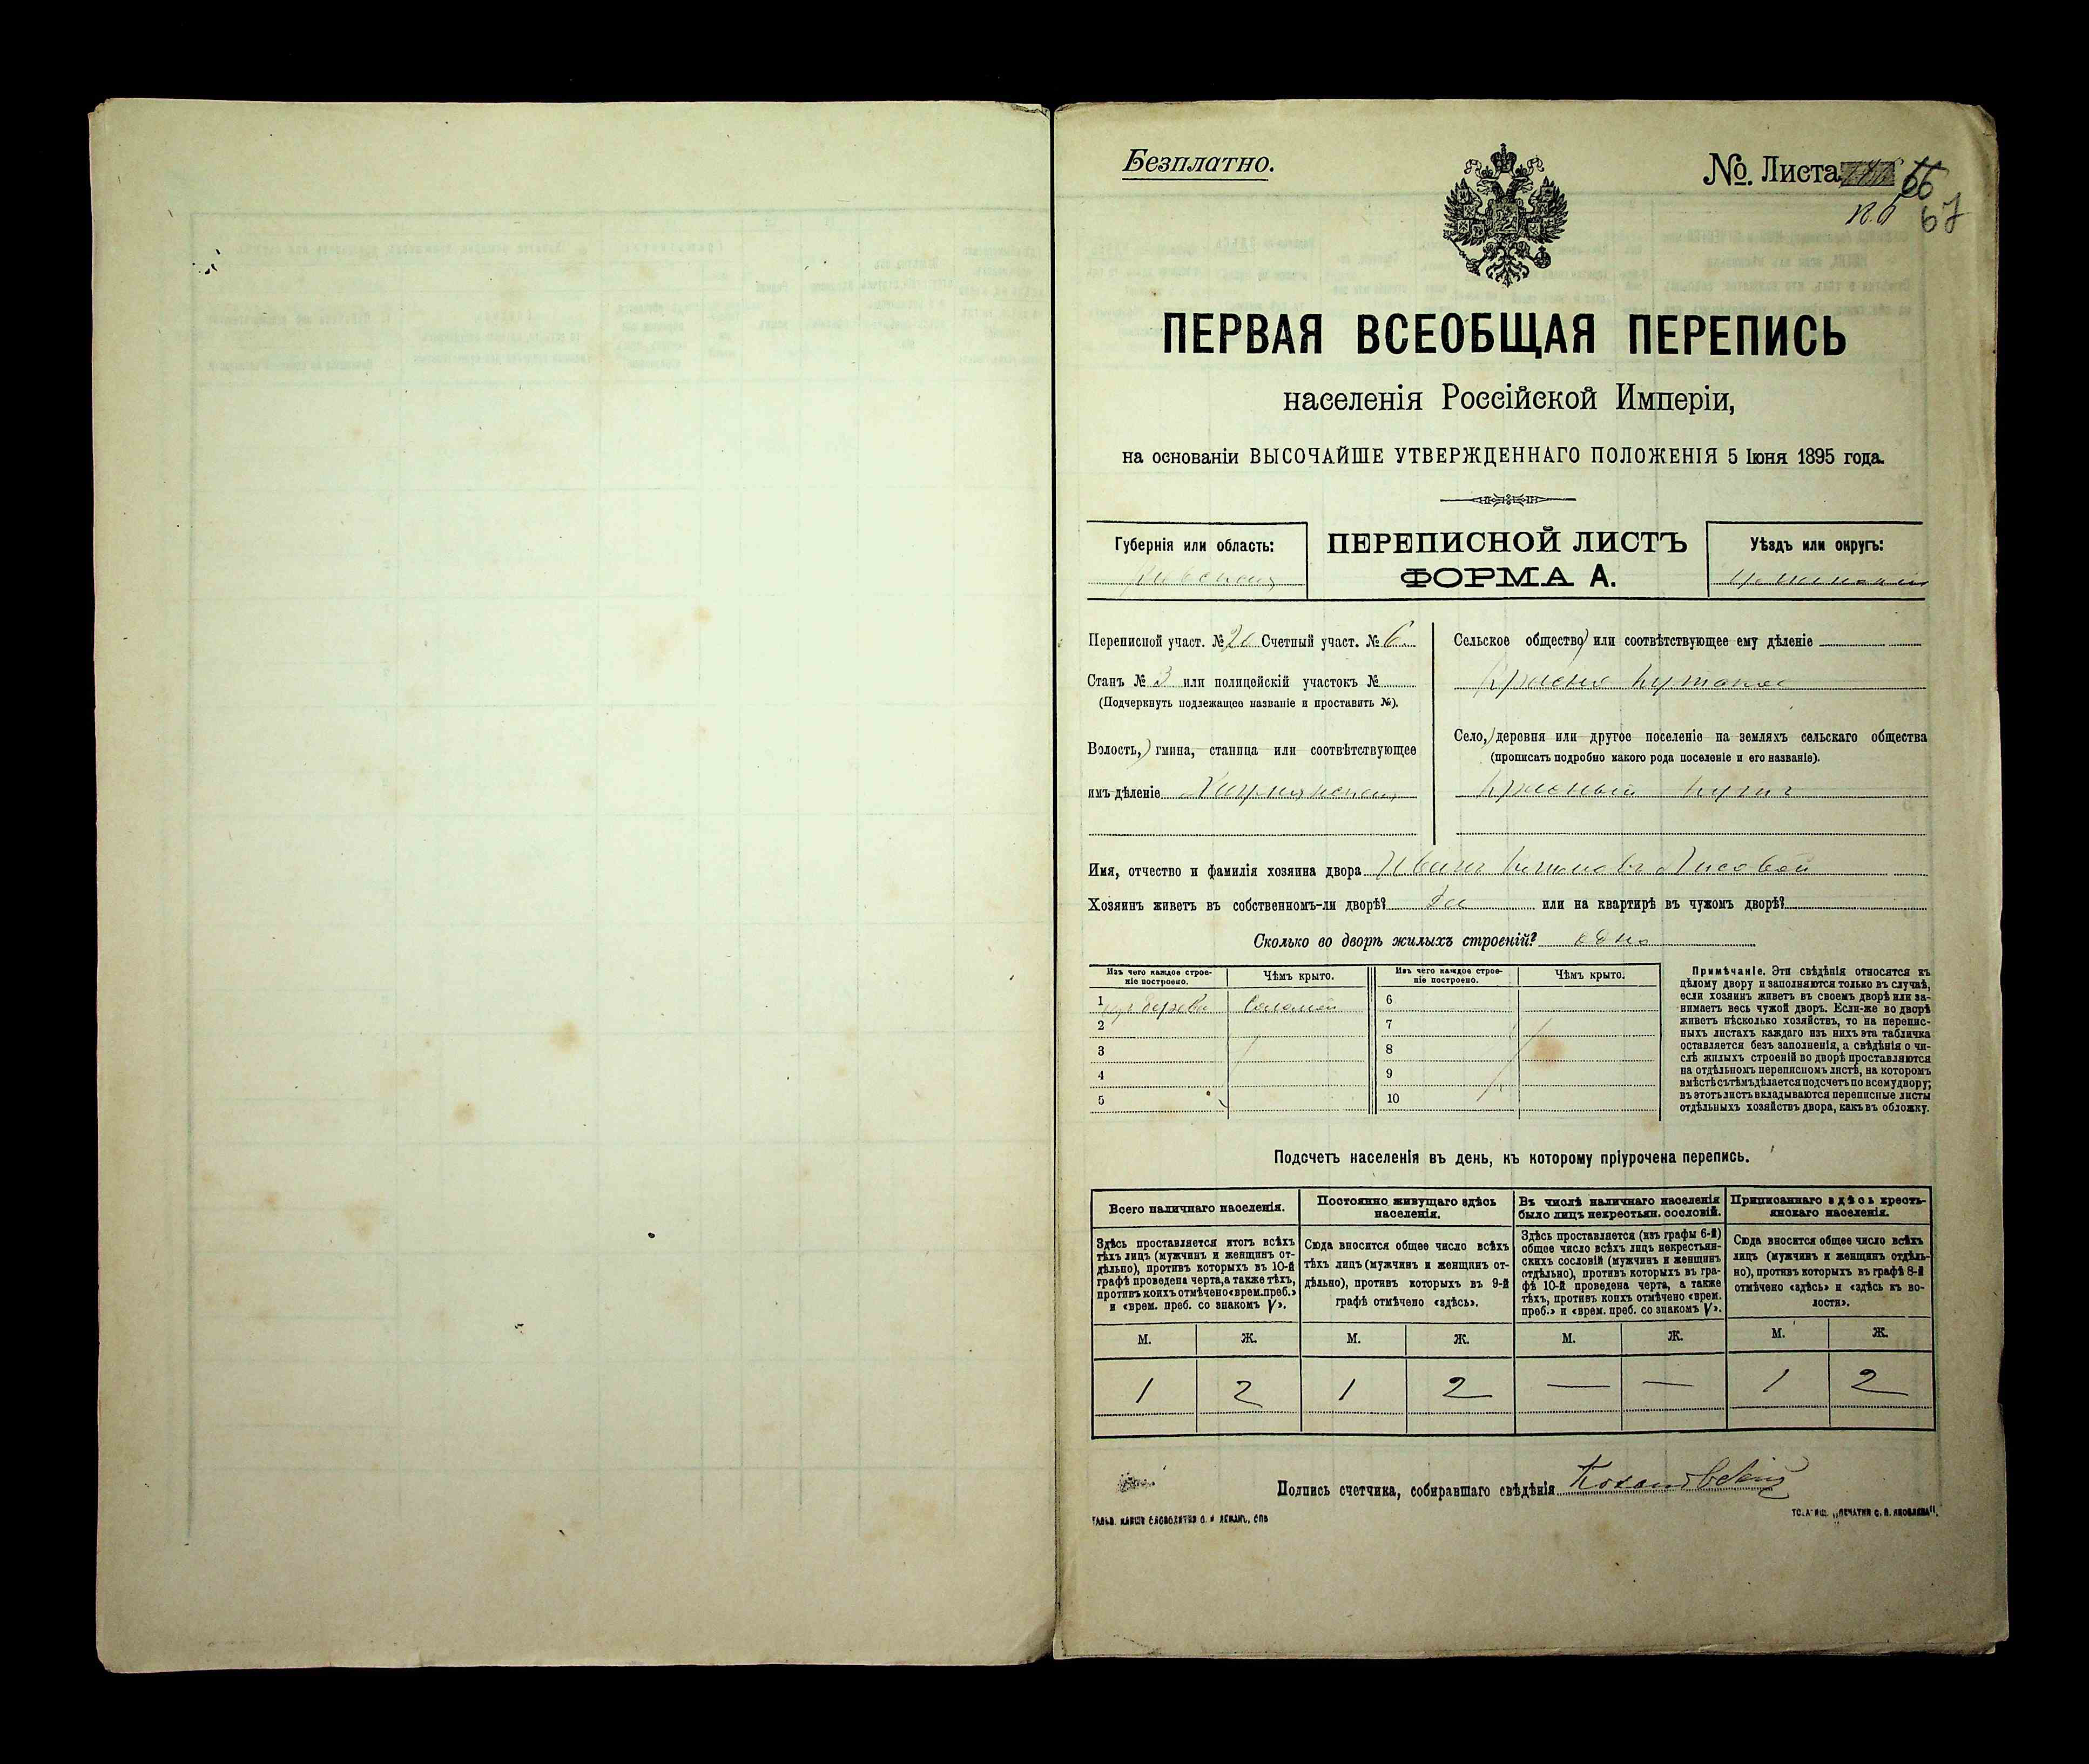 Безплатно.
№ Листа 66
67
ПЕРВАЯ ВСЕОБЩАЯ ПЕРЕПИСЬ
населенія Россійской Имперіи,
на основаніи ВЫСОЧАЙШЕ УТВЕРЖДЕННАГО ПОЛОЖЕНІЯ 5 Іюня 1895 года.
Губернія или область:
Кіевская
ПЕРЕПИСНОЙ ЛИСТЪ
ФОРМА А.
Уѣздъ или округъ:
Переписной участ. № 20 Счетный участ. № 6
Станъ № 3 или полицейскій участокъ №
(Подчеркнуть подлежащее названіе и проставить №).
Волость, гмина, станица или соотвѣтствующее
имъ дѣленіе
Сельское общество или соотвѣтствующее ему дѣленіе
Красно Кутское
Село, деревня или другое поселеніе на земляхъ сельскаго общества
(прописать подробно какого рода поселеніе и его названіе).
Красный Кутъ
Имя, отчество и фамилія хозяина двора Иванъ Лисовой
Хозяинъ живетъ въ собственномъ-ли дворѣ? Да или на квартирѣ въ чужомъ дворѣ?
Сколько во дворѣ жилыхъ строеній? одно
Изъ чего каждое строе-
ніе построено.
Чѣмъ крыто.
Изъ чего каждое строе-
ніе построено.
Чѣмъ крыто.
1 изъ дерева Соломой 6
2 7
3 8
4 9
5 10
Примѣчаніе. Эти свѣдѣнія относятся къ
цѣлому двору и заполняются только въ случаѣ,
если хозяинъ живетъ въ своемъ дворѣ или за-
нимаетъ весь чужой дворъ. Если-же во дворѣ
живетъ нѣсколько хозяйствъ, то на перепис-
ныхъ листахъ каждаго изъ нихъ эта табличка
оставляется безъ заполненія, а свѣдѣнія о чи-
слѣ жилыхъ строеній во дворѣ проставляются
на отдѣльномъ переписномъ листѣ, на которомъ
вмѣстѣ съ тѣмъ дѣлается подсчетъ по всему двору;
въ этотъ листъ вкладываются переписные листы
отдѣльныхъ хозяйствъ двора, какъ въ обложку.
Подсчетъ населенія въ день, къ которому пріурочена перепись.
Всего наличнаго населенія.
Постоянно живущаго здѣсь
населенія.
Въ числѣ наличнаго населенія
было лицъ некрестьян. сословій.
Приписаннаго здѣсь кресть-
янскаго населенія.
Здѣсь проставляется итогъ всѣхъ
тѣхъ лицъ (мужчинъ и женщинъ от-
дѣльно), противъ которыхъ въ 10-й
графѣ проведена черта, а также тѣхъ,
противъ коихъ отмѣчено «врем. преб.»
и «врем. преб. со знакомъ V».
Сюда вносится общее число всѣхъ
тѣхъ лицъ (мужчинъ и женщинъ от-
дѣльно), противъ которыхъ въ 9-й
графѣ отмѣчено «здѣсь».
Здѣсь проставляется (изъ графы 6-й)
общее число всѣхъ лицъ некрестьян-
скихъ сословій (мужчинъ и женщинъ
отдѣльно), противъ которыхъ въ гра-
фѣ 10-й проведена черта, а также
тѣхъ, противъ коихъ отмѣчено «врем.
преб.» и «врем. преб. со знакомъ V».
Сюда вносится общее число всѣхъ
лицъ (мужчинъ и женщинъ отдѣль-
но), противъ которыхъ въ графѣ 8-й
отмѣчено «здѣсь» и «здѣсь къ во-
лости».
М. Ж. М. Ж. М. Ж. М. Ж.
1 2 1 2 — — 1 2
Подпись счетчика, собиравшаго свѣдѣнія Кохановскій